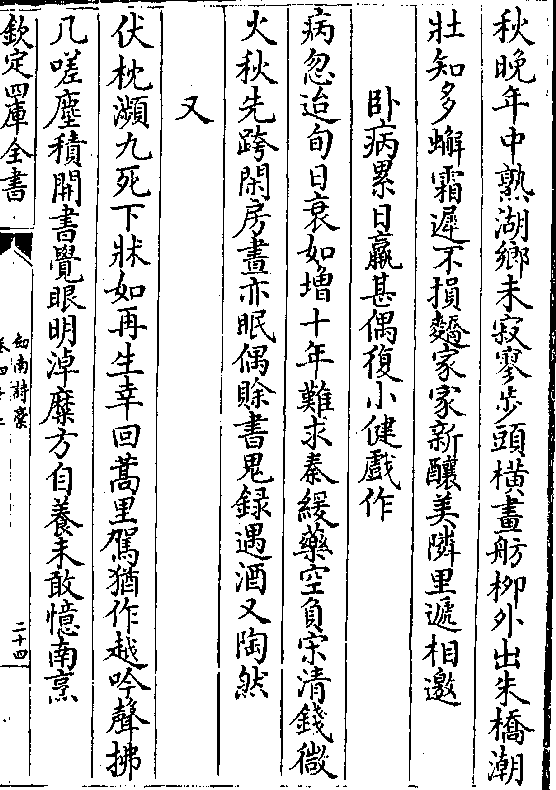 秋晚年中熟湖鄉未寂寥步頭橫畫舫柳外出朱橋潮
壯知多蠏霜遲不損蕎家家新釀美隣里遞相邀
卧病累日羸甚偶復小健戲作
病忽迨旬日衰如增十年難求秦緩藥空負宋清錢微
火秋先跨閑房晝亦眠偶賒書鬼録遇酒又陶然
又
伏枕瀕九死下牀如再生幸回蒿里駕猶作越吟聲拂
几嗟塵積開書覺眼明淖糜方自養未敢憶南烹
欽定四庫全書
劍南詩藁
二十四